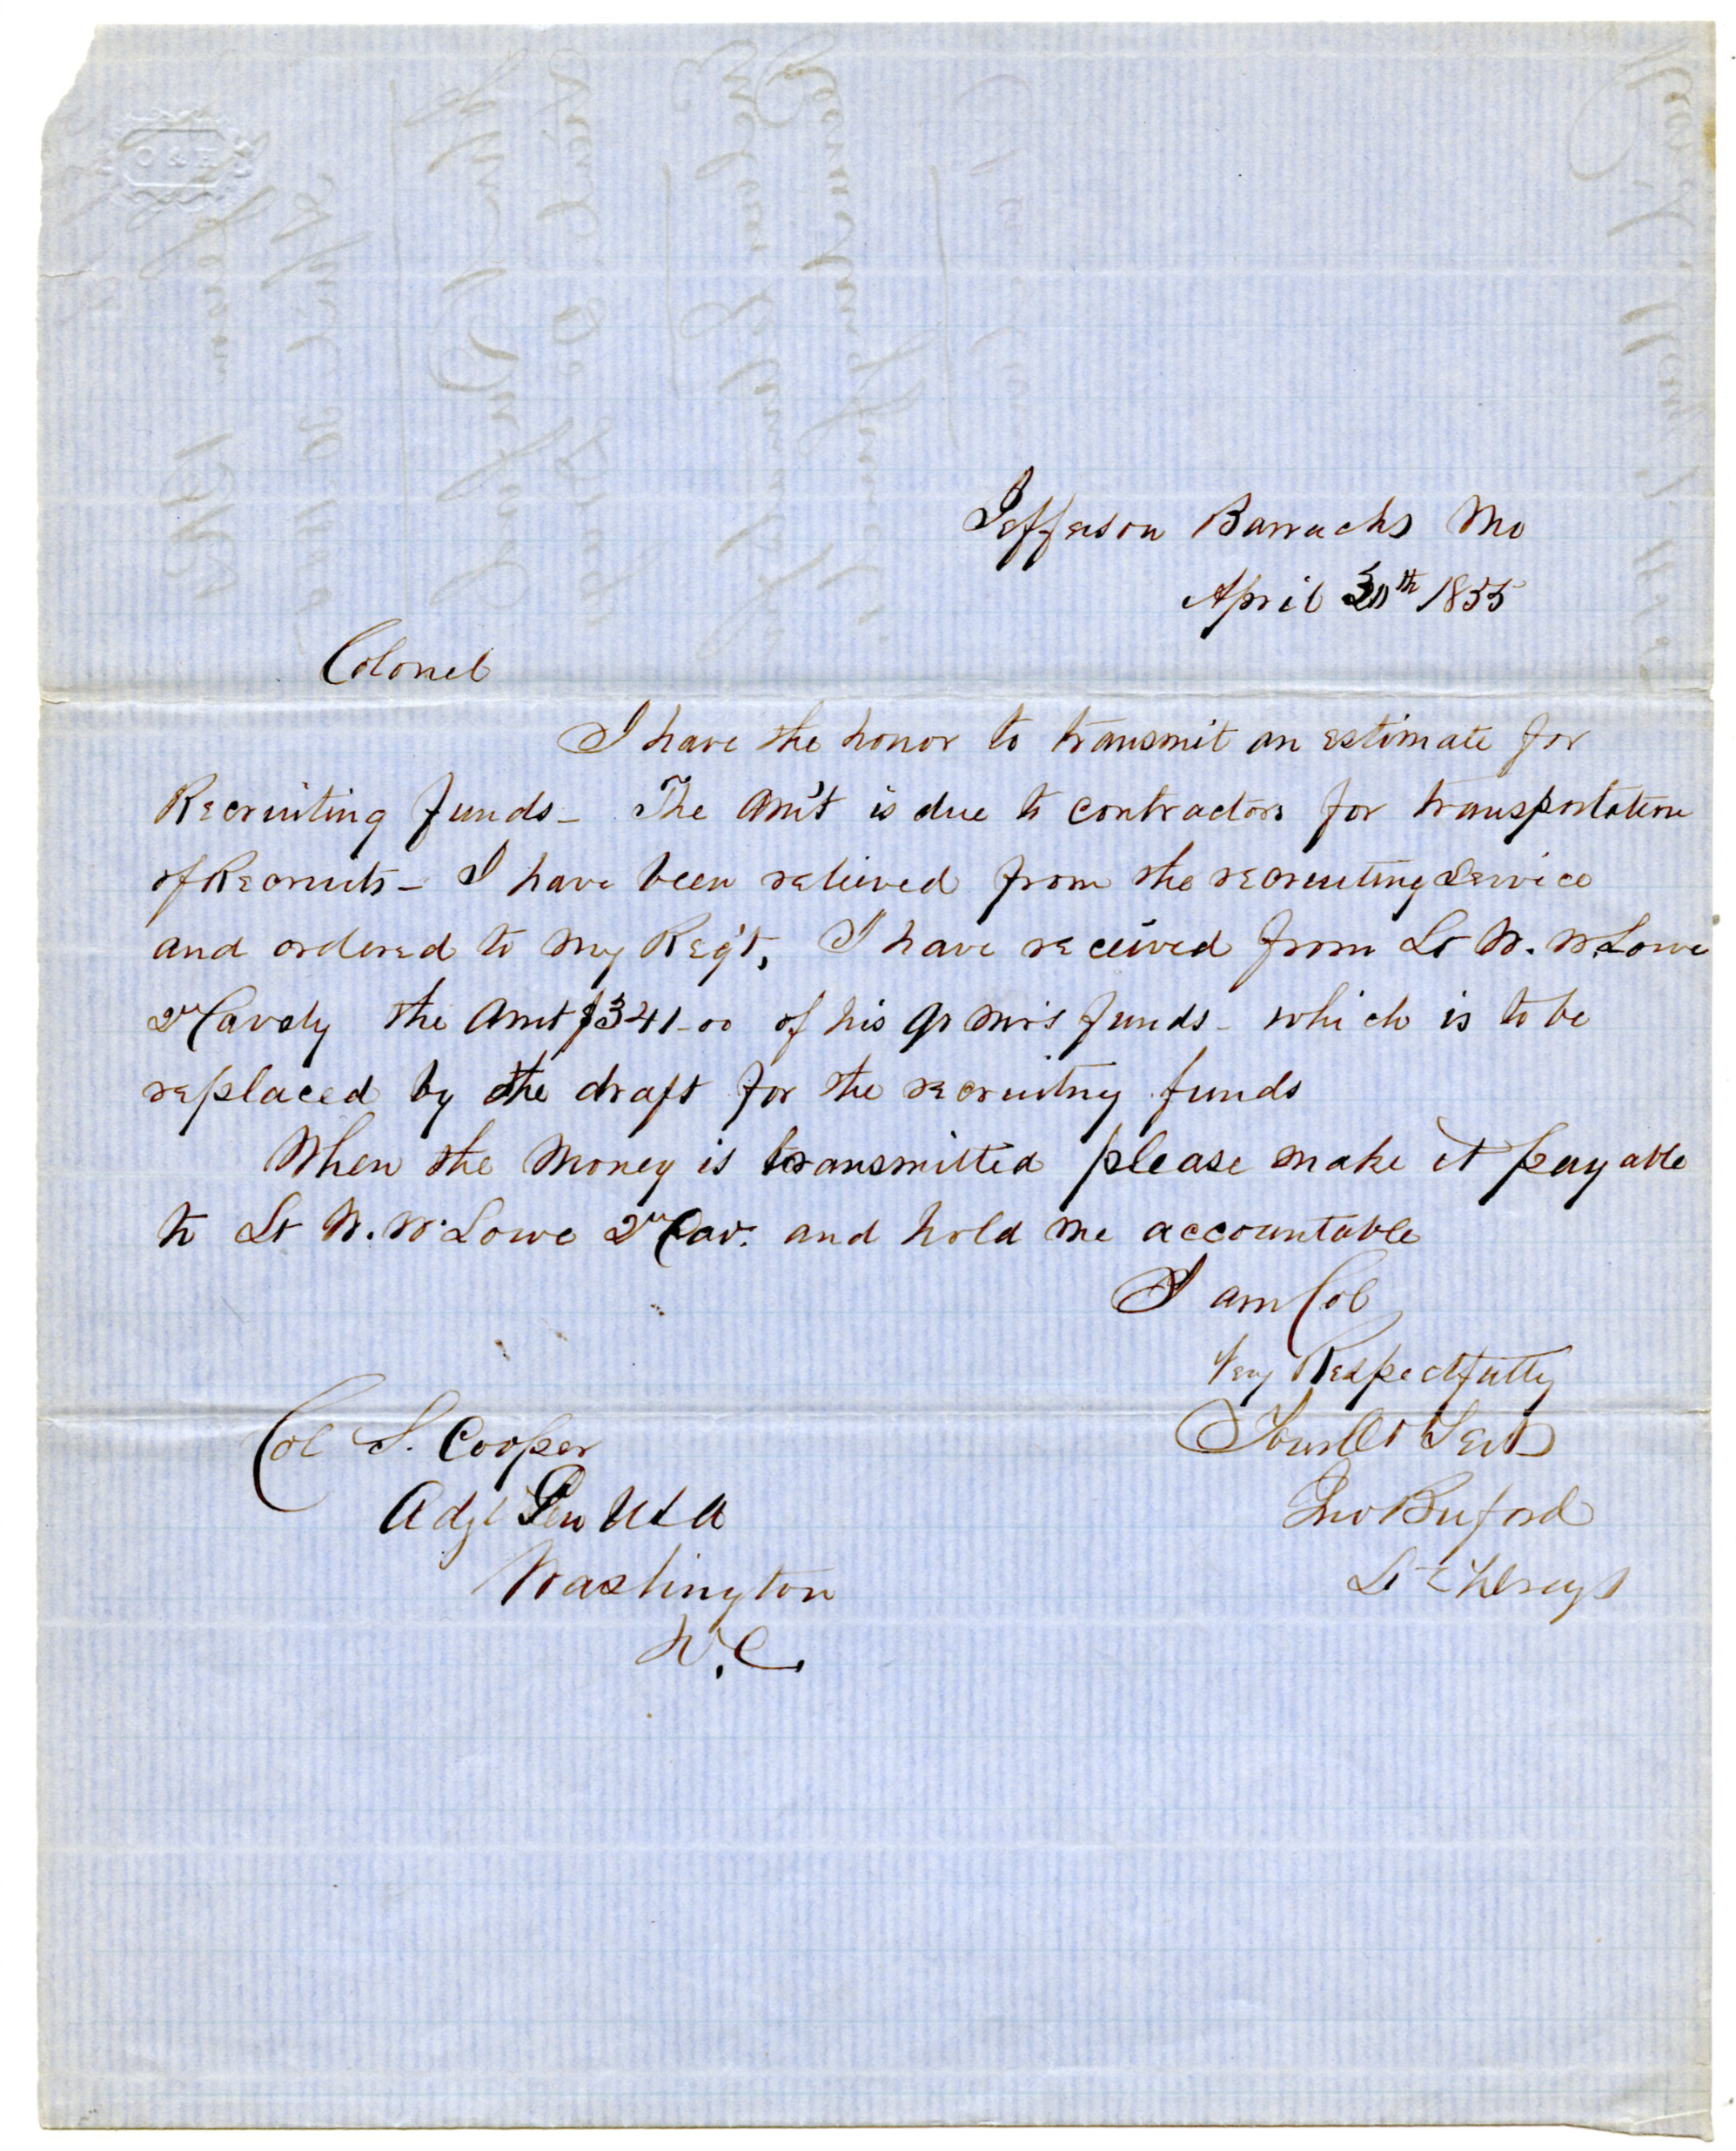 O & H
Jefferson Barracks Mo
April 30th 1855
Colonel
I have the honor to transmit an estimate for
Recruiting funds_ The Am't is due to contractors for transportation
of Recruits_ I have been relieved from the recruiting Service
and ordered to my Reg't, I have received from Lt W. W Lowe
2n Cavaly the Amt $341_00 of his qr mrs funds_ which is to be
replaced by the draft for the recruitng funds
When the Money is transmitted please make it payable
to Lt W. W. Lowe 2n Cav. and hold me accountable
I am Col
Very Respectfully
Your Ob Servt
Col S. Cooper
Jno Buford
Adjt Gen USA
Lt 2 Drags
Washington
D.C.